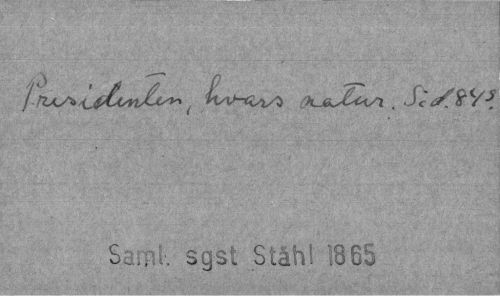 Presidenten, hvars natur. Sid. 843.
Saml. sgst Ståhl 1865